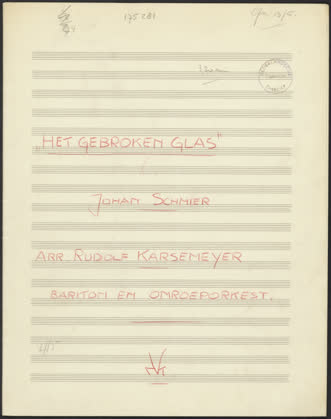 175281
„HET GEBROKEN GLAS"
JOHAN SCHMIER
ARR RUDOLF KARSEMEYER
BARITON EN OMROEPORKEST.